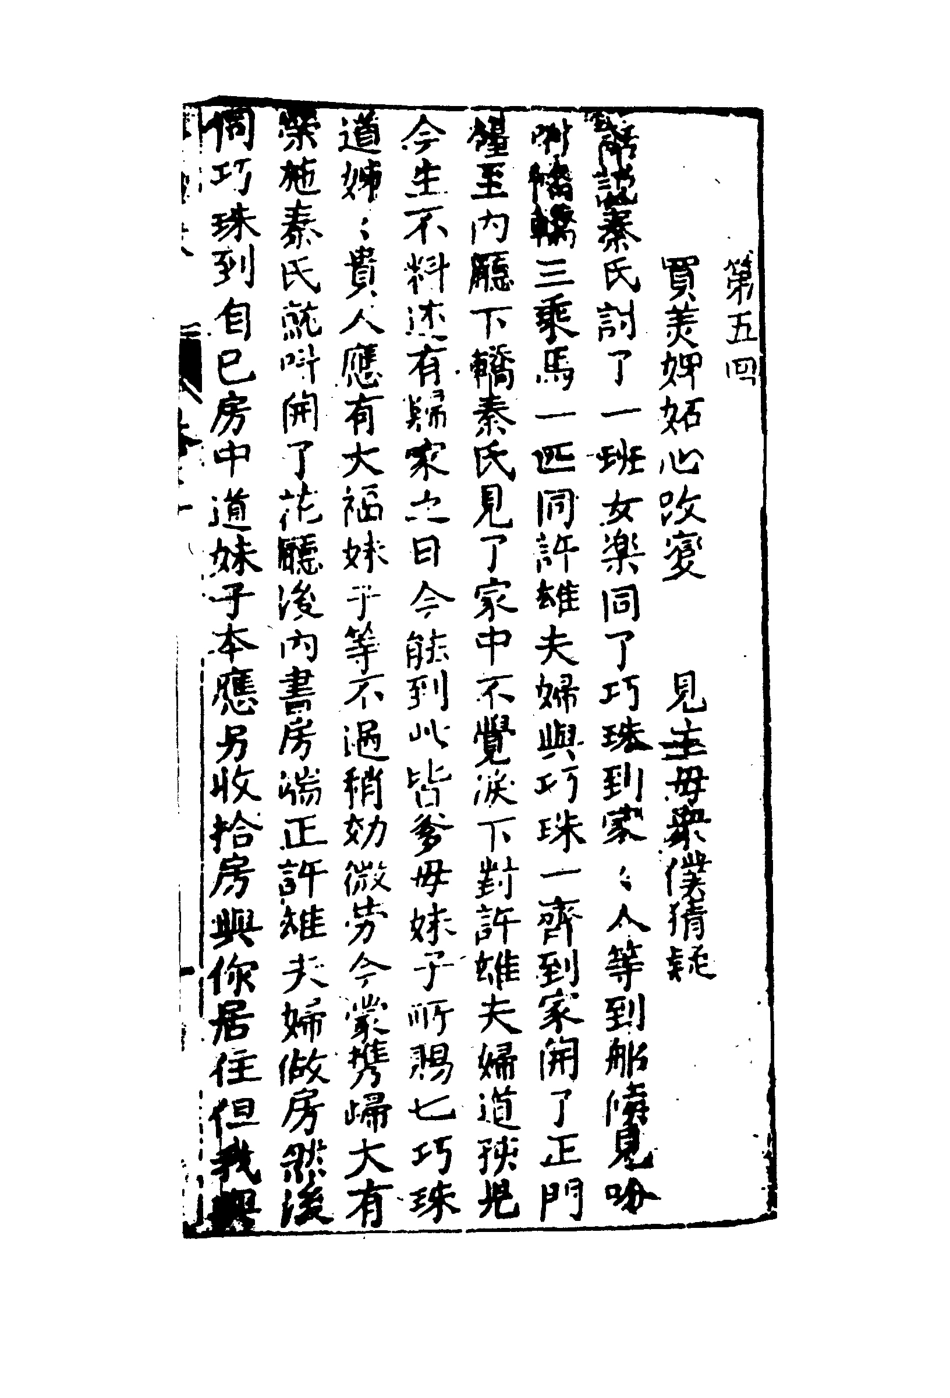 第五回
買美婢妬心改变　見主母衆僕猜疑
話說秦氏討了一班女楽同了巧珠到家〻人等到船傍見吩
咐備轎三乘馬一匹同許雄夫婦與巧珠一齊到家開了正門
擡至内廳下轎秦氏見了家中不覺淚下對許雄夫婦道孩児
今生不料还有歸家之日今能到此皆爹母妹子所賜七巧珠
道姊〻貴人應有大福妹子等不過稍効微劳今蒙携歸大有
榮施秦氏就呌開了花廳後内書房端正許雄夫婦做房然後
同巧珠到自已房中道妹子本應另收拾房與你居住但我與